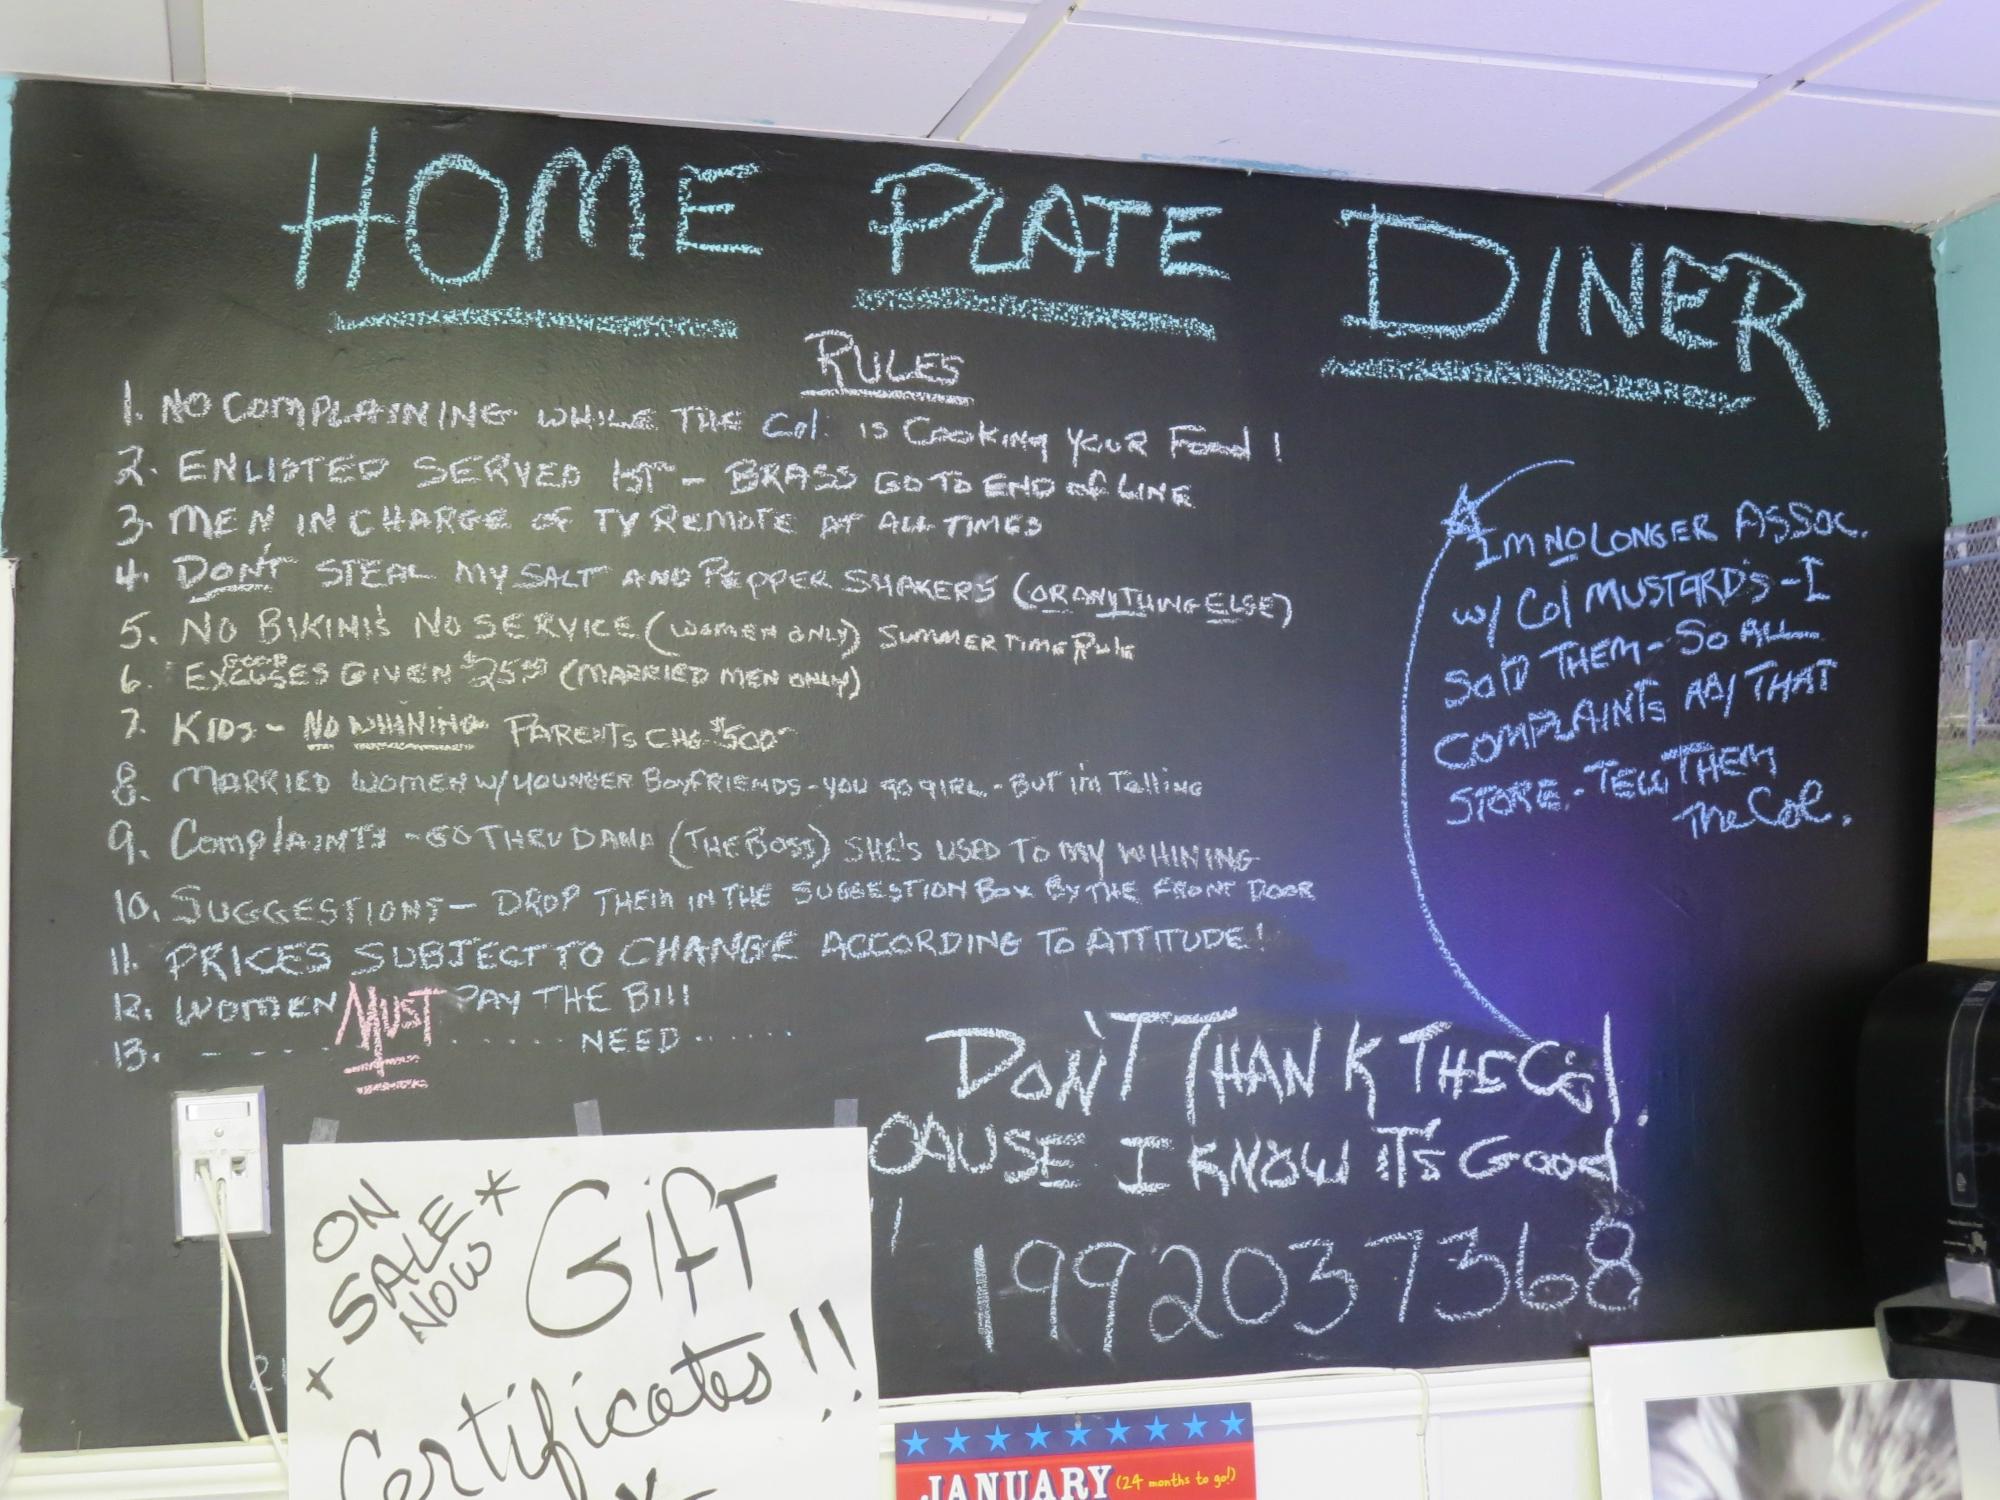 HOME PLATE DINER
RULES
1. NO COMPLAINING WHILE THE Col. IS COOKING YOUR Food!
2. ENLISTED SERVED 1ST - BRASS GO TO END of LINE
3. MEN IN CHARGE OF TV REMOTE AT ALL TIMES
4. DON'T STEAL MY SALT AND PEPPER SHAKERS (OR ANYTHING ELSE)
5. NO BIKINI'S NO SERVICE (WOMEN ONLY) SUMMERTIME Rule
GOOD
6. EXCUSES GIVEN $25.00 (MARRIED MEN ONLY)
7. KIDS - NO WHINING PARENTS CHG $500-
8. MARRIED WOMEN W/ YOUNGER BOYFRIENDS - YOU GO GIRL - BUT I'm Telling
9. Complaints - GO THRU DANA (THE BOSS) SHE'S USED TO MY WHINING
10. SUGGESTIONS - DROP THEM IN THE SUGGESTION BOX BY THE FRONT DOOR
11. PRICES SUBJECT TO CHANGE ACCORDING TO ATTITUDE!
12. WOMEN MUST PAY THE Bill
13. - - - . . . . . . . . NEED . . . . . .
I'm NO LONGER ASSOC.
w/ Col MUSTARD'S - I
SOLD THEM - SO ALL
COMPLAINTS ABT THAT
STORE - TELL THEM
The Col.
DON'T THANK THE Col.
CAUSE I KNOW IT'S Good
1992037368
ON
SALE
NOW
Gift
Certificates!!
JANUARY (24 months to go!)